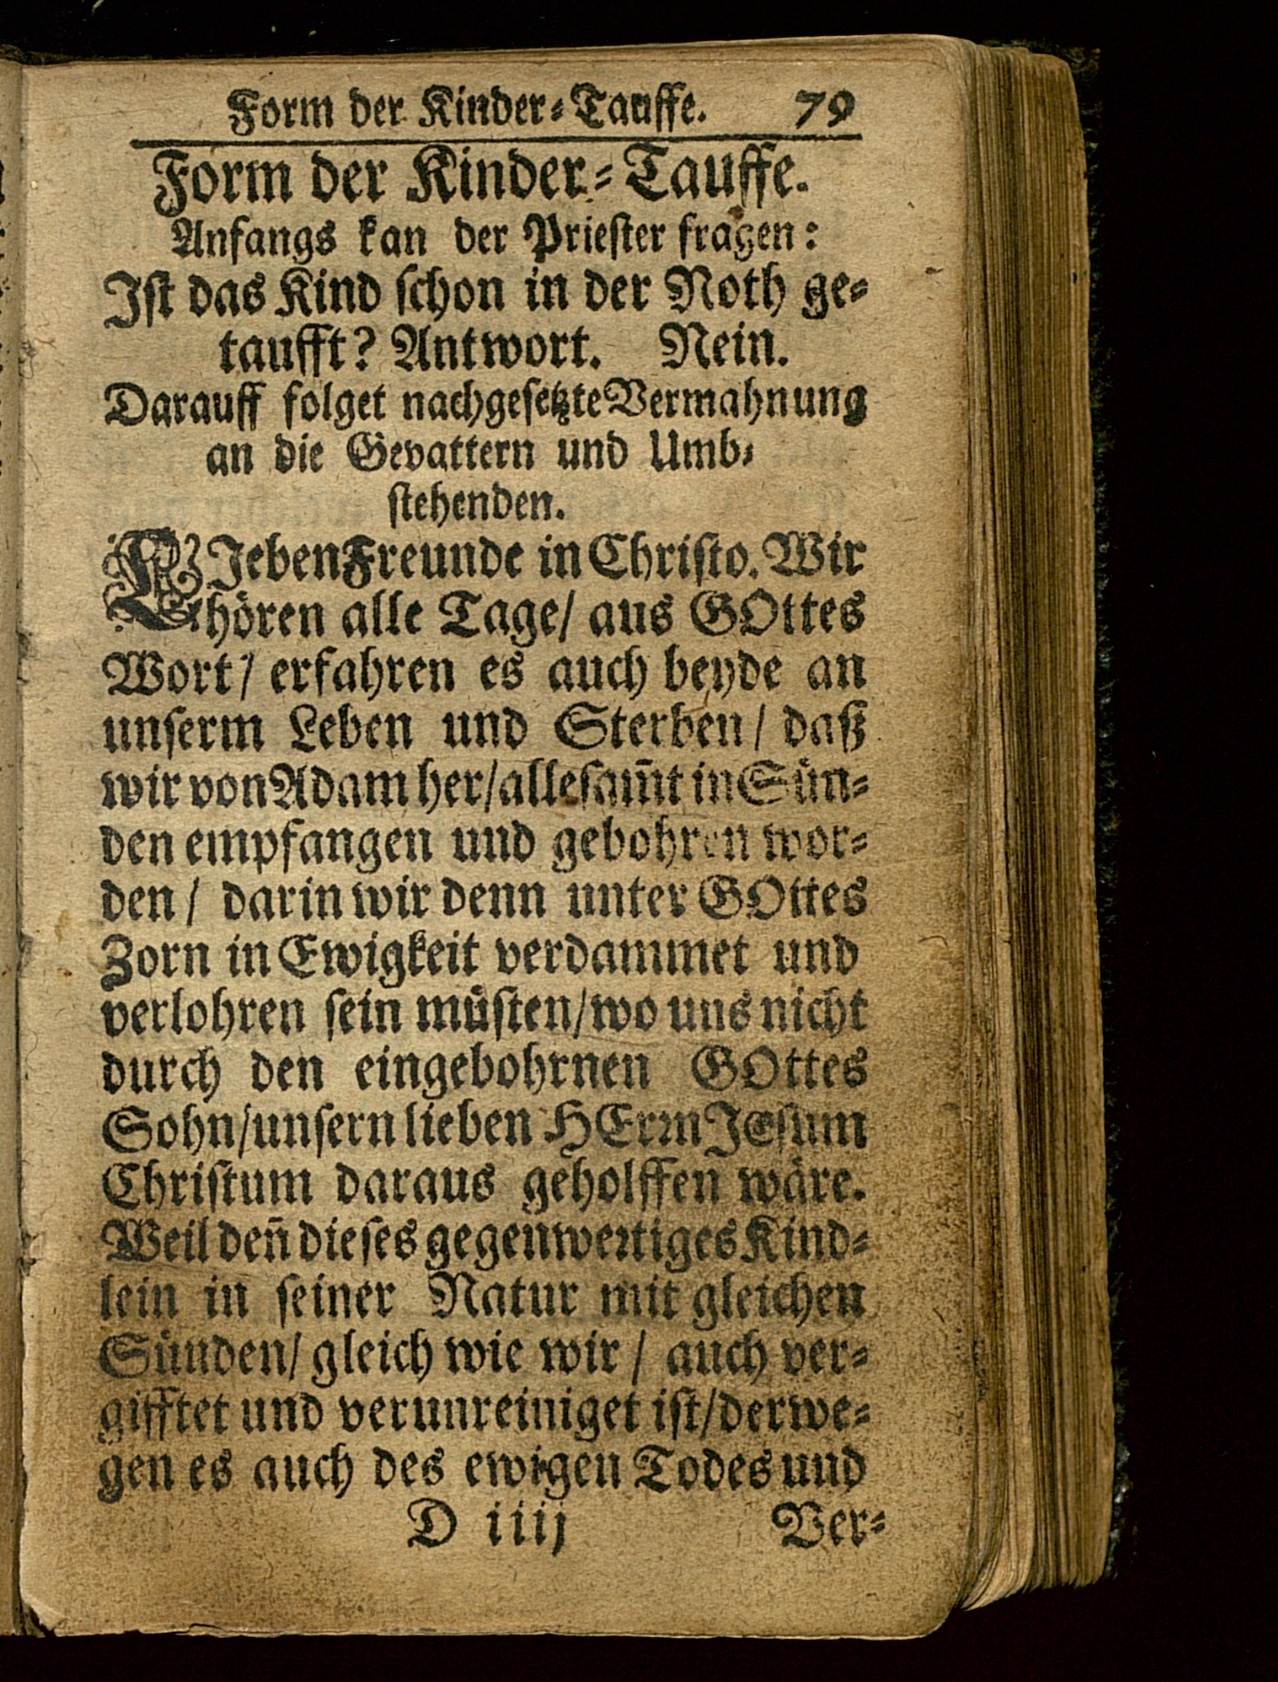 Form der Kinder-Tauffe. 79
Form der Kinder-Tauffe.
Anfangs kan der Priester fragen:
Ist das Kind schon in der Noth ge-
taufft? Antwort. Nein.
Darauff folget nachgesetzte Vermahnung
an die Gevattern und Umb-
stehenden.
LIeben Freunde in Christo. Wir
hören alle Tage/ aus GOttes
Wort/ erfahren es auch beyde an
unserm Leben und Sterben/ daß
wir von Adam her/ allesam̃t in Sün-
den empfangen und gebohren wor-
den/ darin wir denn unter GOttes
Zorn in Ewigkeit verdammet und
verlohren sein müsten/ wo uns nicht
durch den eingebohrnen GOttes
Sohn/ unsern lieben HErrn JEsum
Christum daraus geholffen wäre.
Weil den̄ dieses gegenwertiges Kind-
lein in seiner Natur mit gleichen
Sünden/ gleich wie wir/ auch ver-
gifftet und verunreiniget ist/ derwe-
gen es auch des ewigen Todes und
D iiij Ver-